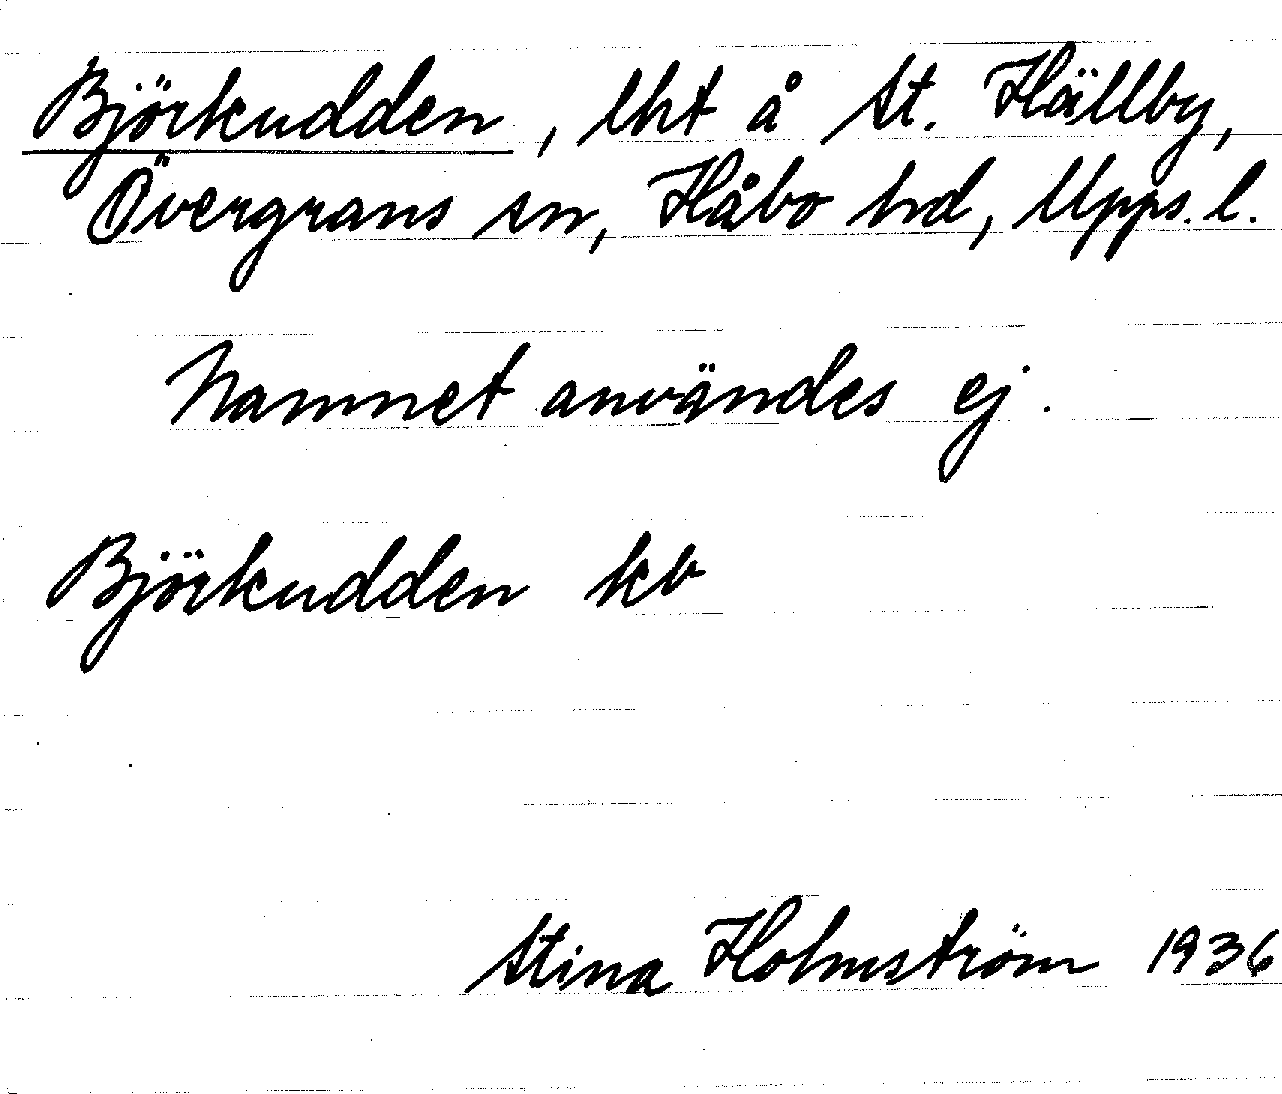 Björkudden, lht å St. Hällby,
Övergrans sn, Håbo hd, Upps. l.
Namnet användes ej.
Björkudden kb
Stina Holmström 1936